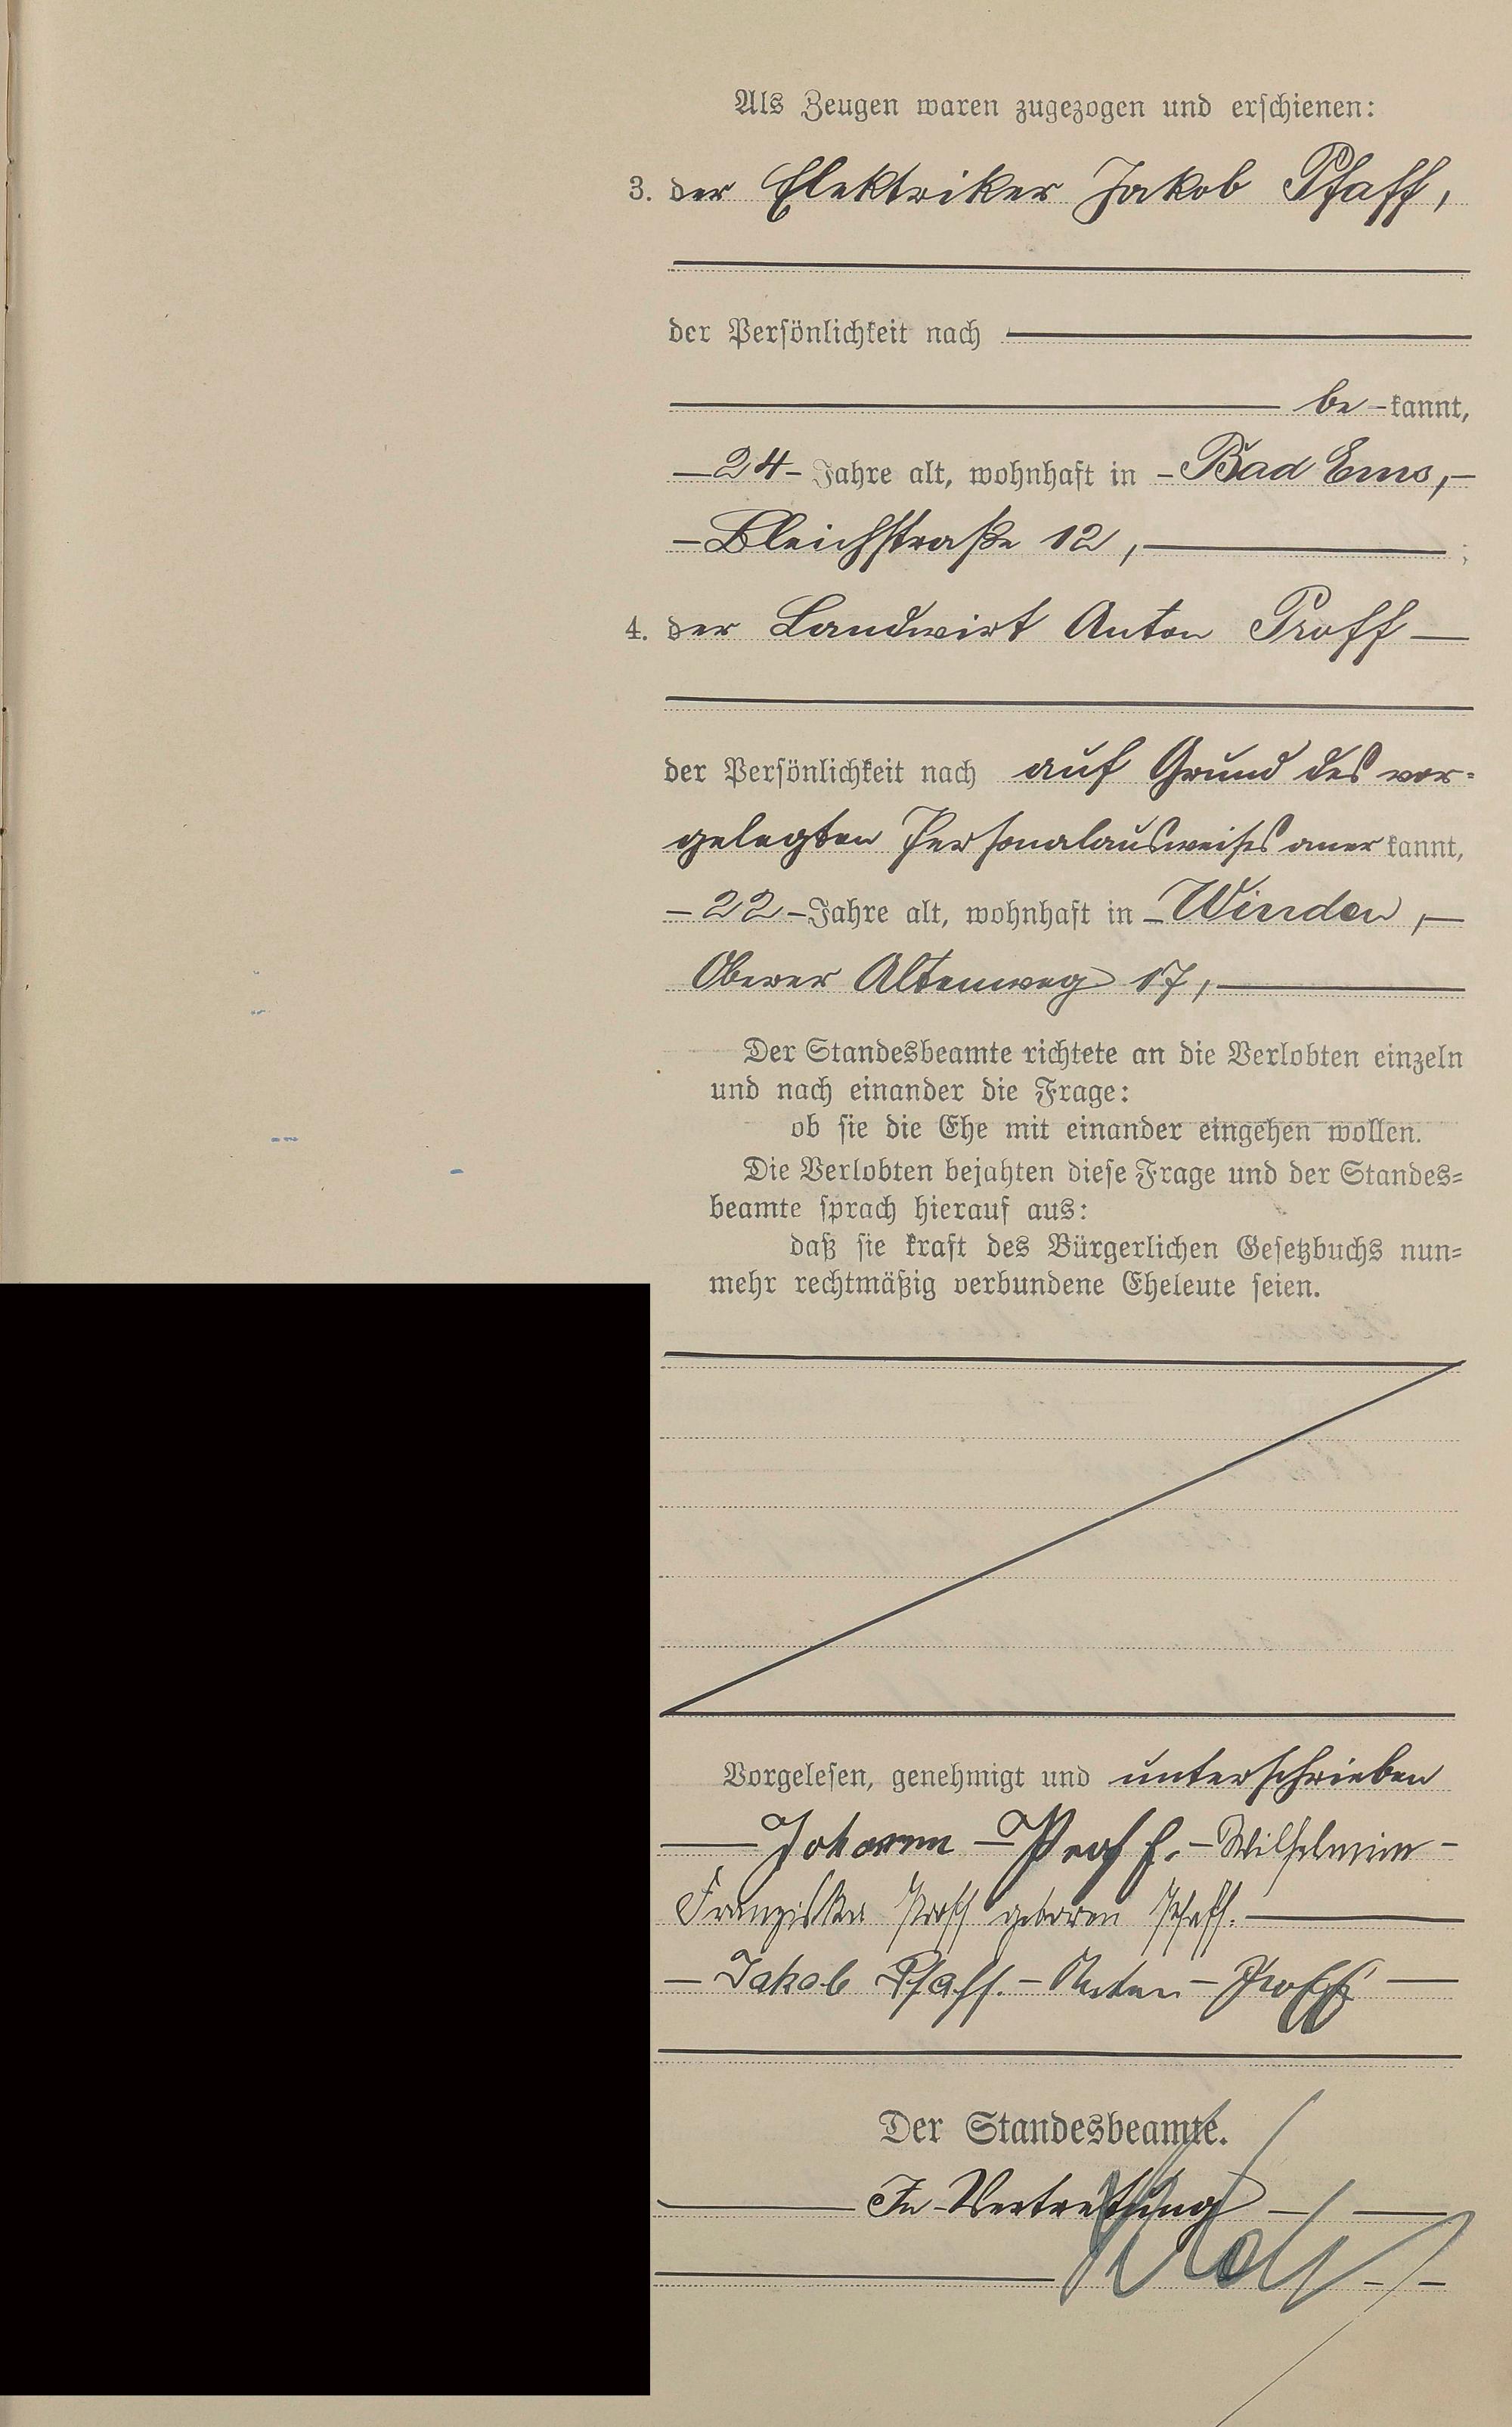 Als Zeugen waren zugezogen und erschienen:
3. der Elektriker Jakob Pfaff,
der Persönlichkeit nach
be-kannt,
-24- Jahre alt, wohnhaft in -Bad Ems,-
-Bleichstraße 12,
;
4. der Landwirt Anton Proff
der Persönlichkeit nach auf Grund des vor-
gelegten Personalausweises aner kannt,
-22- Jahre alt, wohnhaft in -Winden,-
Oberer Altenweg 17,
Der Standesbeamte richtete an die Verlobten einzeln
und nach einander die Frage:
ob sie die Ehe mit einander eingehen wollen.
Die Verlobten bejahten diese Frage und der Standes-
beamte sprach hierauf aus:
daß sie kraft des Bürgerlichen Gesetzbuchs nun-
mehr rechtmäßig verbundene Eheleute seien.
Vorgelesen, genehmigt und unterschrieben
Johann - Proff. - Wilhelmine -
Franziska Proff geboren Pfaff.
- Jakob Pfaff. - Anton - Proff
Der Standesbeamte.
In Vertretung